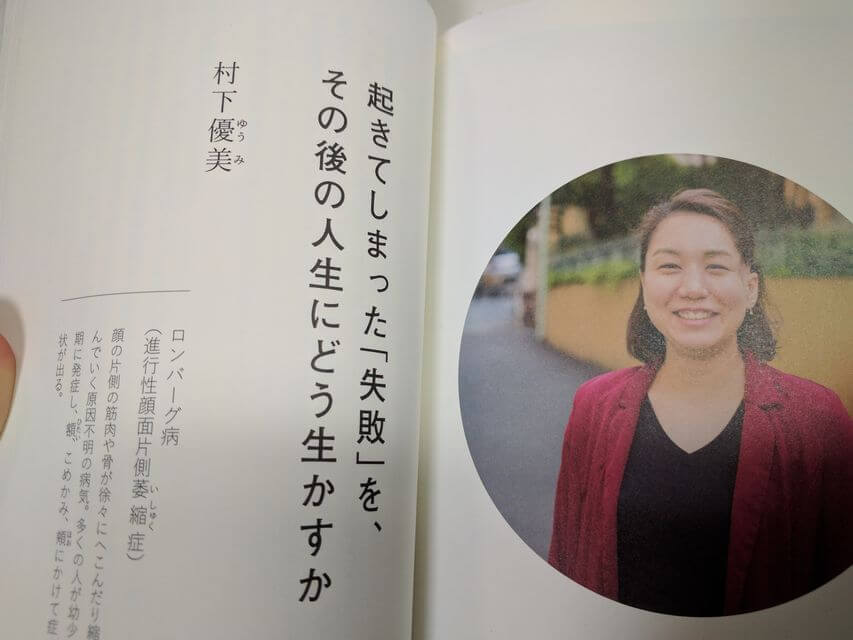 起きてしまった「失敗」を、
その後の人生にどう生かすか
村下優美
ゆうみ
ロンバーグ病
（進行性顔面片側萎縮症）
いしゅく
顔の片側の筋肉や骨が徐々にへこんだり縮
んでいく原因不明の病気。多くの人が幼少
期に発症し、額、こめかみ、頬にかけて症
ひたい
ほお
状が出る。